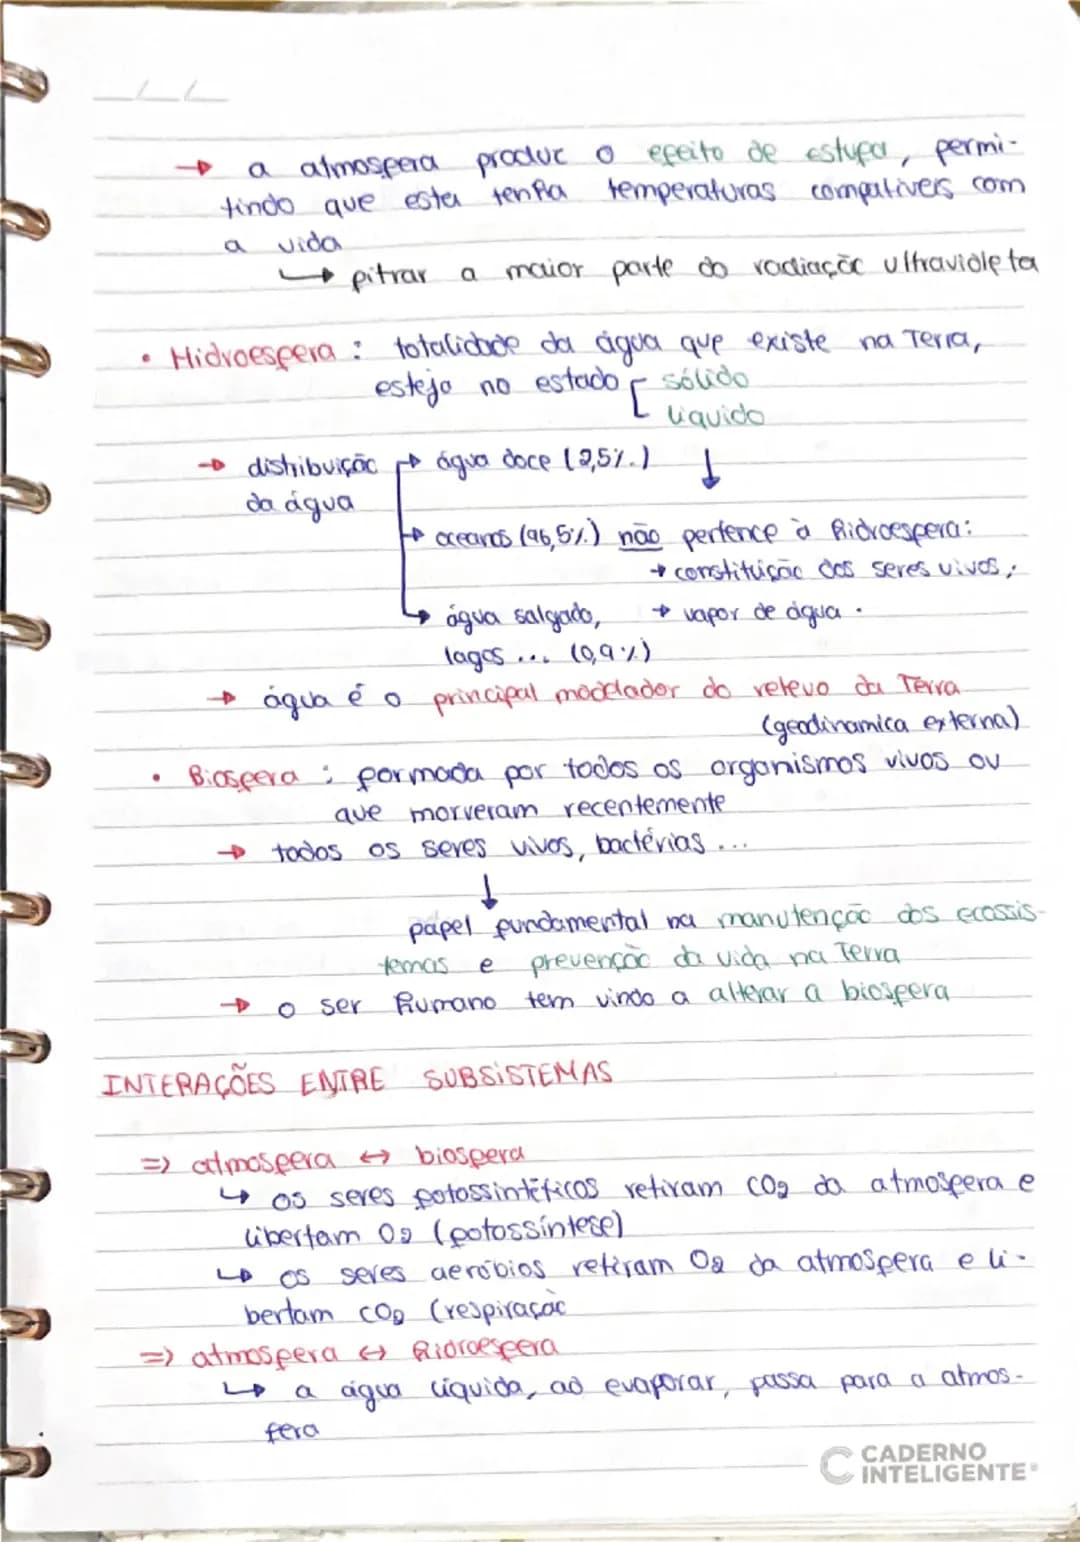 → a atmosfera produz o efeito de estufa, permi-
tindo que esta tenha temperaturas compatíveis com
a vida
↳ filtrar a maior parte do radiação ultravioleta
• Hidroesfera : totalidade da água que existe na Terra,
esteja no estado [ sólido
líquido
→ distribuição → água doce (2,5%.) ↓
da água
→ oceanos (96,5%.) não pertence à hidroesfera:
→ constituição dos seres vivos;
↳ água salgado, → vapor de água .
lagos ... (0,9%)
→ água é o principal modelador do relevo da Terra
(geodinamica externa)
• Biosfera : formada por todos os organismos vivos ou
que morveram recentemente
→ todos os seres vivos, bactérias ...
↓
papel fundamental na manutenção dos ecossis-
temas e prevenção da vida na Terra
→ o ser humano tem vindo a alterar a biosfera
INTERAÇÕES ENTRE SUBSISTEMAS
=> atmosfera ↔ biosfera
↳ os seres fotossintéticos retiram CO2 da atmosfera e
libertam O2 (fotossíntese)
↳ os seres aeróbios retiram O2 da atmosfera e li-
bertam CO2 (respiração
=> atmosfera ↔ hidroesfera
↳ a água líquida, ao evaporar, passa para a atmos-
fera
CADERNO
INTELIGENTE®